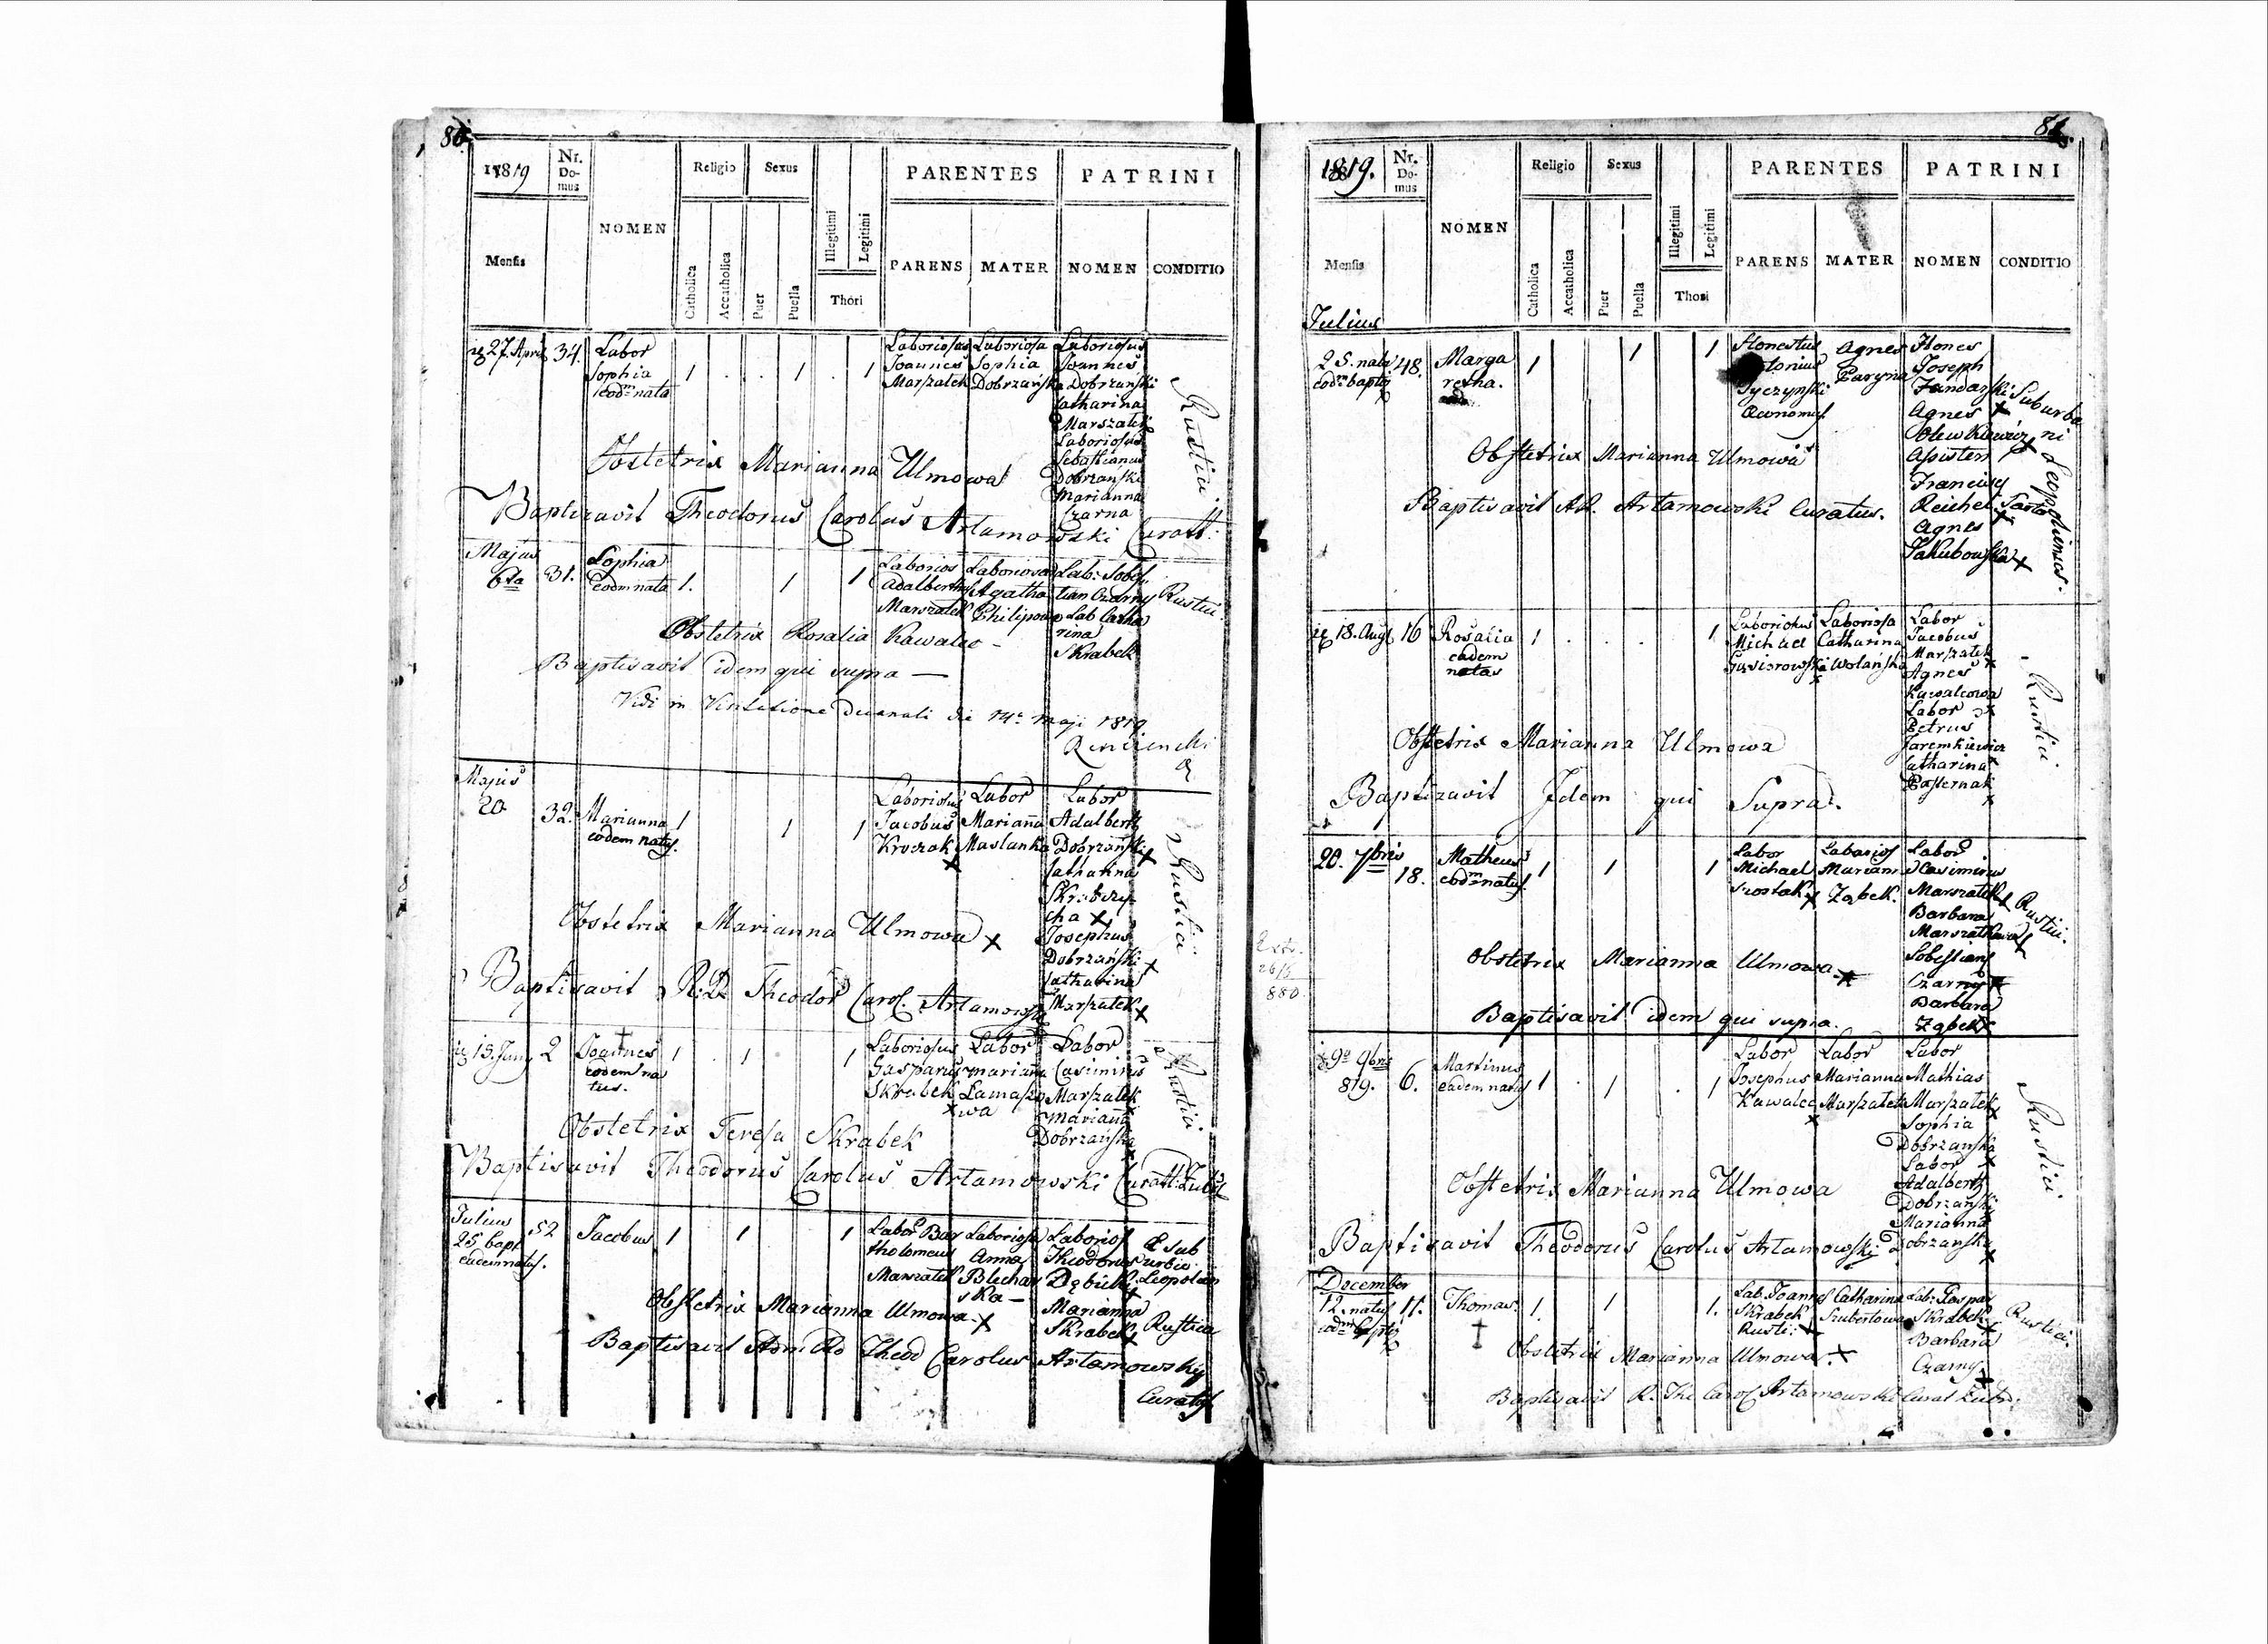 80.
1819
Nr. Domus
NOMEN
Religio
Sexus
Illegitimi
Legitimi
PARENTES
PATRINI
Mensis
Catholica
Accatholica
Puer
Puella
Thori
PARENS
MATER
NOMEN
CONDITIO
27. April 34. Labor Sophia eodm nata 1 . . 1 . 1
Laboriosus Joannes Marszałek
Laboriosa Sophia Dobrzańska
Laboriosus Joannes Dobrzanski
Catharina Marszałek
Laboriosus Sebastianus Dobrzański
Marianna Czarna
Rustici
Obstetrix Marianna Ulmowa
Baptizavit Theodorus Carolus Artamowski Curatt.
Majus
6ta 31. Sophia eodm nata 1. 1 1
Laborios Adalbertus Marszałek
Laboriosa Agatha Philipowa
Lab: Sobestian Czarny
Lab Catharina Skrabek
Rustici
Obstetrix Rosalia Kawalec -
Baptisavit idem qui supra —
Vidi in Visitatione Decanali die 14a maji 1819
Majus
20 32. Marianna eodem natus. 1 1 1
Laboriosus Jacobus Kroczak
Labor Marianna Maslanka
Labor Adalbertus Dobrzański
Catharina
Josephus Dobrzański
Catharina Marszałek
Rustici
Obstetrix Marianna Ulmowa
Baptisavit R: D Theodor Carol. Artamowski
15. Juny 2 Joannes eodem natus. 1 . 1 1
Laboriosus Gasparus Skrabek
Labor marianna
Labor Casimirus Marszałek
marianna Dobrzańska
Rustici.
Obstetrix Teresa Skrabek
Baptisavit Theodorus Carolus Artamowski Curatt:
Julius
25 bapt eadem natus. 52 Jacobus 1 1 1
Labor Bartholomeus Marszałek
Laboriosa Anna Blecharska —
Laborios Theodorus Dębicki
Marianna Skrabek
Suburbio Leopolien
Rustica
Obstetrix Marianna Ulmowa
Baptisavit Adm Rd Theod Carolus Artamowsky
Curatus
1819.
Nr. Domus
NOMEN
Religio
Sexus
Illegitimi
Legitimi
PARENTES
PATRINI
Mensis
Catholica
Accatholica
Puer
Puella
Thori
PARENS
MATER
NOMEN
CONDITIO
Julius
25. nata eodm baptis 48. Margaretha. 1 1 1
Honestus
Agnes
Hones Joseph
Agnes
Assisten
Francisc Reichel
Agnes Jakubowska
Suburbani Leopolienses.
Obstetrix Marianna Ulmowa
Baptisavit AR. Artamowski Curatus.
18. Aug. 16 Rosalia eadem natas 1 . . . 1
Laboriosus Michael
Laboriosa Catharina Wolańska
Labor Jacobus Marszałek
Agnes Kawalcowa
Labor Petrus Jaremkiewicz
Catharina Pasternak
Rustici.
Obstetrix Marianna Ulmowa
Baptizavit Idem qui Supra.
20. 7bris 18. Matheus eodm natus 1 1 1
Labor Michael
Laborios Mariann Ząbek.
Labor Casimirus Marszałek
Barbara Marszałkowa
Sobestians Czarny
Barbara Ząbek
Rustici.
Obstetrix Marianna Ulmowa.
Baptisavit idem qui supra.
9a 9bris 819. 6. Martinus eadem natus 1 . 1 . 1
Labor Josephus Kawalec
Labor Marianna Marszałek
Labor Mathias Marszałek
Sophia Dobrzanska
Labor Adalbertus Dobrzański
Marianna Dobrzanska
Rustici
Obstetrix Marianna Ulmowa
Baptizavit Theodorus Carolus Artamowski
December
12. natus eodm baptis 11. Thomas. 1. 1 1.
Lab: Joannes Skrabek Rusti:
Catharina Szubertowa
Lab: Gaspar Skrabek
Barbara Czarny
Rustici.
Obstetrix Marianna Ulmowa.
Baptisavit R. The Carol Artamowski Curat